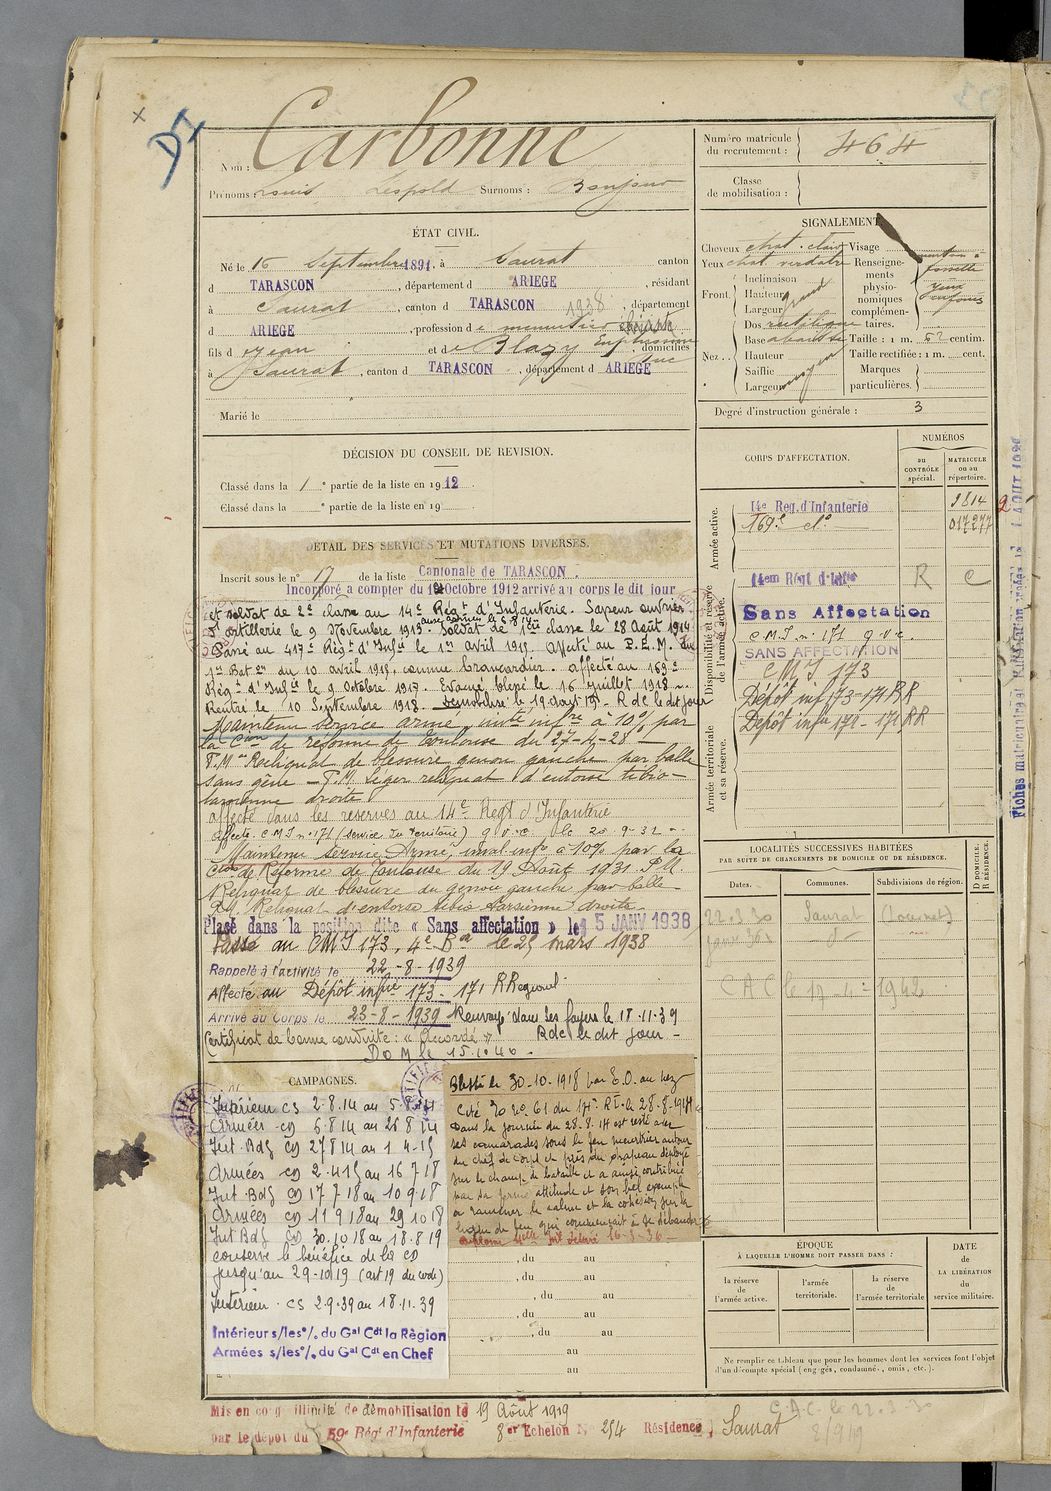 Carbonne
Nom :
Prénoms : Louis Léopold Surnoms : Bonjour
Numéro matricule
du recrutement : 464
Classe
de mobilisation :
ÉTAT CIVIL.
Né le 16 Septembre 1891, à Saurat canton
d TARASCON, département d ARIEGE, résidant
à Saurat, canton d TARASCON 1938, département
d ARIEGE, profession de menuisier
fils d Jean et de Blazy Euphrosine, domiciliés
à Saurat, canton d TARASCON, département d ARIEGE
Marié le
SIGNALEMENT
Cheveux chat. clair Visage
Yeux chat verdatre Renseigne-
Inclinaison ments
Front Hauteur grand physio-
Largeur nomiques
Dos rectiligne complémen-
taires.
Base abaissée Taille : 1 m. 62 centim.
Nez .. Hauteur Taille rectifiée : 1 m. cent.
Saillie Marques
Largeur moyen particulières.
menton à
fossette
yeux
enfoncés
Degré d'instruction générale : 3
DÉCISION DU CONSEIL DE REVISION.
Classé dans la 1 e partie de la liste en 1912
Classé dans la e partie de la liste en 19
DÉTAIL DES SERVICES ET MUTATIONS DIVERSES.
Inscrit sous le n° 17 de la liste Cantonale de TARASCON.
Incorporé à compter du Octobre 1912 arrivé au corps le dit jour
et soldat de 2e classe au 14e Régt d'Infanterie. Sapeur ouvrier
d'artillerie le 9 Novembre 1913. Soldat de 1ere classe le 28 Août 1914
aux armées le 6.8.14
Passé au 417e Régt d'Infie le 1er avril 1915. affecté au P.E.M. du
1er Baton du 10 avril 1915, comme brancardier. affecté au 169e
Régt d'Infie le 9 Octobre 1917. Evacué blessé le 16 juillet 1918.
Rentré le 10 Septembre 1918. Démobilisé le 19 août 19 - R de le dit jour
Maintenu service armé, inapte infie à 10% par
la Cion de réforme de Toulouse du 27-4-28
P.M. Reliquat de blessure genou gauche par balle
sans gêne - P.M. Léger reliquat d'entorse tibio-
tarsienne droite
affecté dans les réserves au 14e Régt d'Infanterie
affecté C.M.I n° 171 (service du Territoire) g.v.c. le 20-9-32
Maintenu service Armé, inval. infe à 10% par la
Cion de Réforme de Toulouse du 19 Août 1931 P.M.
Reliquat de blessure du genou gauche par balle
P.M. Reliquat d'entorse tibio tarsienne droite
Placé dans la position dite « Sans affectation » le 15 JANV 1938
Passé au CMI 173, 4e Ba le 25 mars 1938
Rappelé à l'activité le 22-8-1939
Affecté au Dépôt infie 173-171 RRégional
Arrivé au Corps le 23-8-1939 Renvoyé dans ses foyers le 18-11-39
Certificat de bonne conduite : « Accordé » R de le dit jour
D o M le 15.10.40.
CORPS D'AFFECTATION.
NUMÉROS
au
CONTRÔLE
spécial.
MATRICULE
ou au
répertoire.
Armée active.
Disponibilité et réserve
de l'armée active.
Armée territoriale
et sa réserve.
14e Reg. d'Infanterie 3814
169e do 017277
14em Régt d'Infie R C
Sans Affectation
C.M.I. n° 171 g.v.c.
SANS AFFECTATION
CMI 173
Dépôt inf 173-171 RR
Dépôt infie 171-171 RR
LOCALITÉS SUCCESSIVES HABITÉES
PAR SUITE DE CHANGEMENTS DE DOMICILE OU DE RÉSIDENCE.
Dates. Communes. Subdivisions de région.
D DOMICILE.
R RÉSIDENCE.
22.3.30 Saurat
janv 36 do
CAC le 17-4-1942
CAMPAGNES.
Intérieur CS 2.8.14 au 5.8.14
Armées CD 6.8.14 au 26 8 14
Int. Bdg CD 27 8 14 au 1-4-15
Armées CD 2.4.15 au 16 7 18
Int. Bdg CD 17 7 18 au 10 9 18
Armées CD 11 9 18 au 29 10 18
Int Bdg CD 30.10 18 au 18.8.19
conserve le bénéfice de la CD
jusqu'au 29-10 19 (art 19 du code)
Intérieur CS 2.9.39 au 18.11.39
Intérieur s/les °/. du Gal Cdt la Région
Armées s/les °/. du Gal Cdt en Chef
Blessé le 30-10-1918 par E.O. au nez
Cité 30 n° 61 du 14e RI le 28-8-1914
Dans la journée du 28.8.14 est resté avec
ses camarades sous le feu meurtrier autour
du chef de corps et près du drapeau déployé
sur le champ de bataille et a ainsi contribué
par sa ferme attitude et son bel exemple
à ramener le calme et la cohésion sur la
ligne de feu qui commençait à se débander
16-3-36
, du au
, du au
, du au
, du au
, du au
au
au
ÉPOQUE
À LAQUELLE L'HOMME DOIT PASSER DANS :
la réserve
de
l'armée active.
l'armée
territoriale.
la réserve
de
l'armée territoriale
DATE
de
LA LIBÉRATION
du
service militaire.
Ne remplir ce tableau que pour les hommes dont les services font l'objet
d'un décompte spécial (engagés, condamnés, omis, etc.).
Mis en congé illimité de démobilisation le 19 Août 1919
par le dépôt du 59e Régt d'Infanterie 8er Echelon N° 254 Résidence Saurat
C.A.C. le 22.3.30